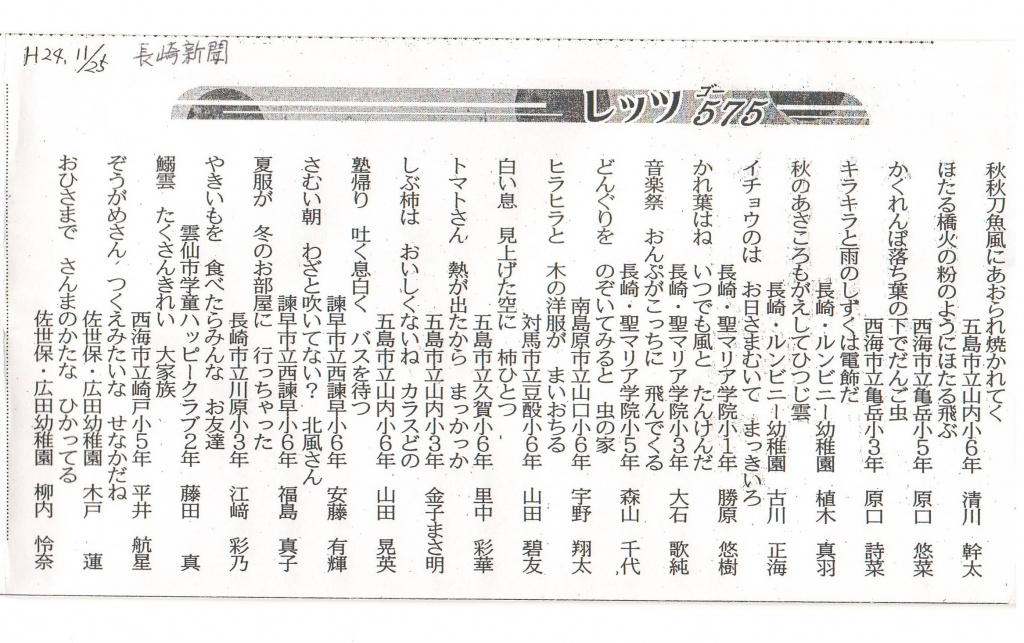 H24, 11/25 長崎新聞
レッツゴー575
秋秋刀魚風にあおられ焼かれてく
五島市立山内小6年 清川 幹太
ほたる橋火の粉のようにほたる飛ぶ
西海市立亀岳小5年 原口 悠菜
かくれんぼ落ち葉の下でだんご虫
西海市立亀岳小3年 原口 詩菜
キラキラと雨のしずくは電飾だ
長崎・ルンビニー幼稚園 植木 真羽
秋のあざころもがえしてひつじ雲
長崎・ルンビニー幼稚園 古川 正海
イチョウのは お日さまむいて まっきいろ
長崎・聖マリア学院小1年 勝原 悠樹
かれ葉はね いつでも風と たんけんだ
長崎・聖マリア学院小3年 大石 歌純
音楽祭 おんぷがこっちに 飛んでくる
長崎・聖マリア学院小5年 森山 千代
どんぐりを のぞいてみると 虫の家
南島原市立山口小6年 宇野 翔太
ヒラヒラと 木の洋服が まいおちる
対馬市立豆酘小6年 山田 碧友
白い息 見上げた空に 柿ひとつ
五島市立久賀小6年 里中 彩華
トマトさん 熱が出たから まっかっか
五島市立山内小3年 金子まさ明
しぶ柿は おいしくないね カラスどの
五島市立山内小6年 山田 晃英
塾帰り 吐く息白く バスを待つ
諫早市立西諫早小6年 安藤 有輝
さむい朝 わざと吹いてない? 北風さん
諫早市立西諫早小6年 福島 真子
夏服が 冬のお部屋に 行っちゃった
長崎市立川原小3年 江﨑 彩乃
やきいもを 食べたらみんな お友達
雲仙市学童ハッピークラブ2年 藤田 真
鰯雲 たくさんきれい 大家族
西海市立崎戸小5年 平井 航星
ぞうがめさん つくえみたいな せなかだね
佐世保・広田幼稚園 木戸 蓮
おひさまで さんまのかたな ひかってる
佐世保・広田幼稚園 柳内 怜奈